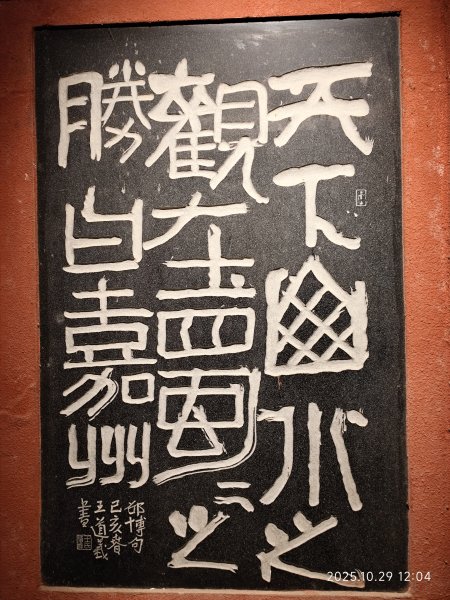 天下山水之
觀在蜀〻之
勝曰嘉州
邵博句
己亥春
王道義
書
2025.10.29 12:04